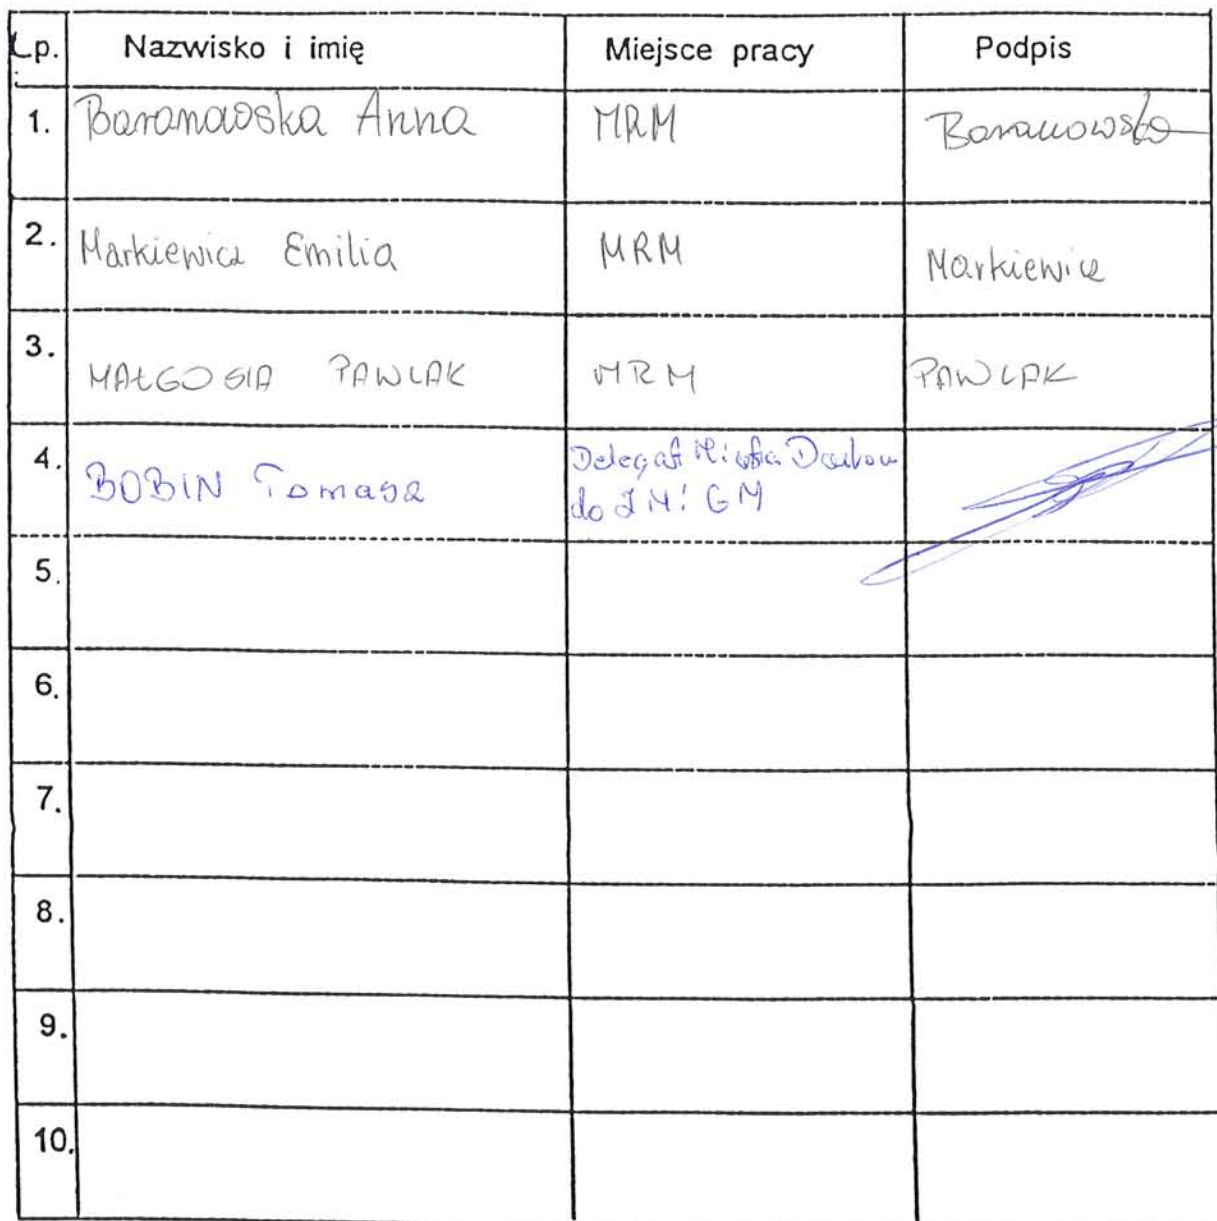 Lp. Nazwisko i imię Miejsce pracy Podpis
1. Baranowska Anna MRM Baranowska
2. Markiewicz Emilia MRM Markiewicz
3. MAŁGOSIA PAWLAK MRM PAWLAK
4. BOBIN Tomasz Delegat Miasta
do GM
5.
6.
7.
8.
9.
10.